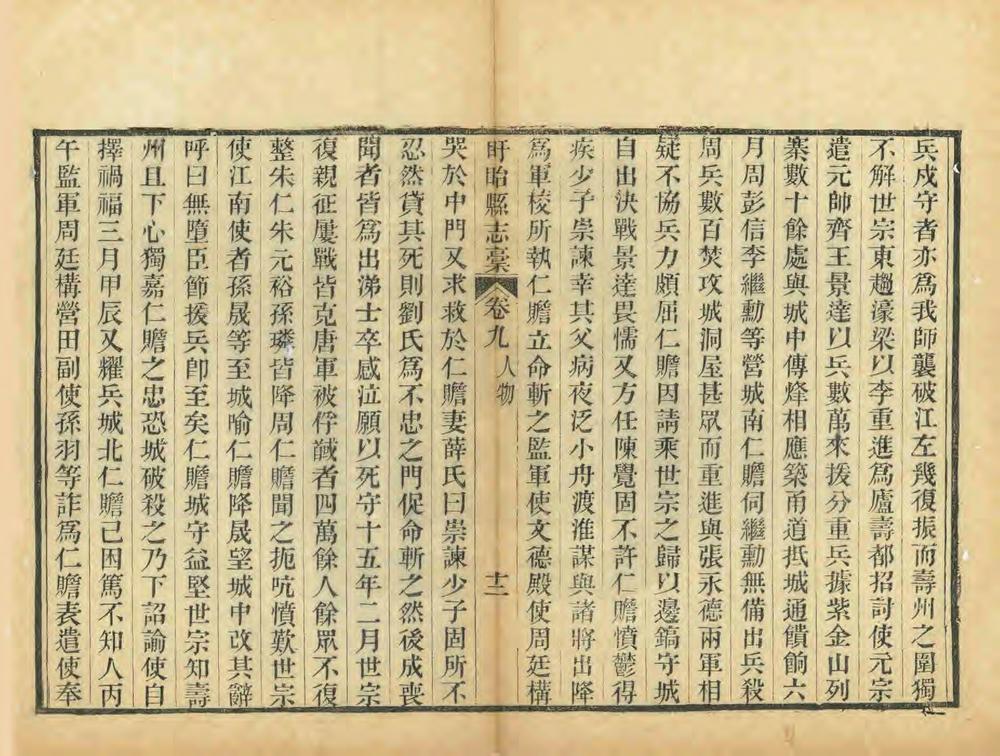 兵戍守者亦爲我師襲破江左幾復振而壽州之圍獨
不解世宗東趨濠梁以李重進爲廬壽都招討使元宗
遣元帥齊王景達以兵數萬來援分重兵據紫金山列
寨數十餘處與城中傳烽相應築甬道抵城通饋餉六
月周彭信李繼勳等營城南仁贍伺繼勳無備出兵殺
周兵數百焚攻城洞屋甚眾而重進與張永德兩軍相
疑不協兵力頗屈仁贍因請乘世宗之歸以邊鎬守城
自出決戰景達畏懦又方任陳覺固不許仁贍憤鬱得
疾少子崇諫幸其父病夜泛小舟渡淮謀與諸將出降
爲軍校所執仁贍立命斬之監軍使文德殿使周廷構
盱眙縣志稾 卷九 人物 十二
哭於中門又求救於仁贍妻薛氏曰崇諫少子固所不
忍然貸其死則劉氏爲不忠之門促命斬之然後成喪
聞者皆爲出涕士卒感泣願以死守十五年二月世宗
復親征屢戰皆克唐軍被俘馘者四萬餘人餘眾不復
整朱仁朱元裕孫璘皆降周仁贍聞之扼吭憤歎世宗
使江南使者孫晟等至城喻仁贍降晟望城中改其辭
呼曰無墮臣節援兵卽至矣仁贍城守益堅世宗知壽
州且下心獨嘉仁贍之忠恐城破殺之乃下詔諭使自
擇禍福三月甲辰又耀兵城北仁贍已困篤不知人丙
午監軍周廷構營田副使孫羽等詐爲仁贍表遣使奉